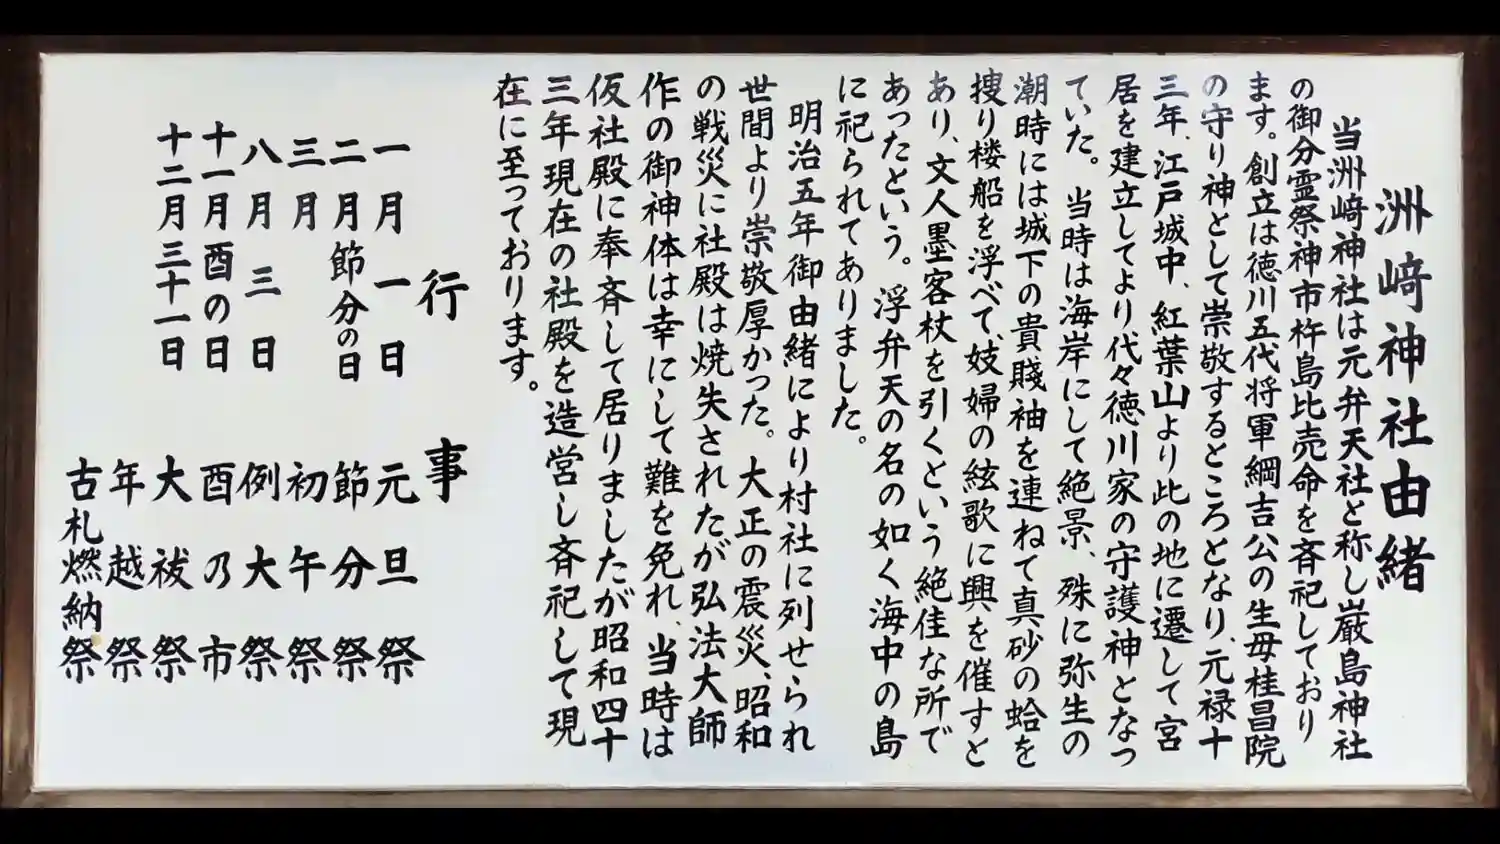 洲﨑神社由緒
当洲﨑神社は元弁天社と称し巌島神社
の御分霊祭神市杵島比売命を斉祀しており
ます。創立は徳川五代将軍綱吉公の生母桂昌院
の守り神として崇敬するところとなり、元禄十
三年、江戸城中、紅葉山より此の地に遷して宮
居を建立してより代々徳川家の守護神となつ
ていた。当時は海岸にして絶景、殊に弥生の
潮時には城下の貴賤袖を連ねて真砂の蛤を
捜り楼船を浮べて、妓婦の絃歌に興を催すと
あり、文人墨客杖を引くという絶佳な所で
あったという。浮弁天の名の如く海中の島
に祀られてありました。
明治五年御由緒により村社に列せられ
世間より崇敬厚かった。大正の震災、昭和
の戦災に社殿は焼失されたが弘法大師
作の御神体は幸にして難を免れ、当時は
仮社殿に奉斉して居りましたが昭和四十
三年現在の社殿を造営し斉祀して現
在に至っております。
行事
一月一日 元旦祭
二月節分の日 節分祭
三月 初午祭
八月三日 例大祭
十一月酉の日 酉乃市
十二月三十一日 大祓祭
年越祭
古札燃納祭